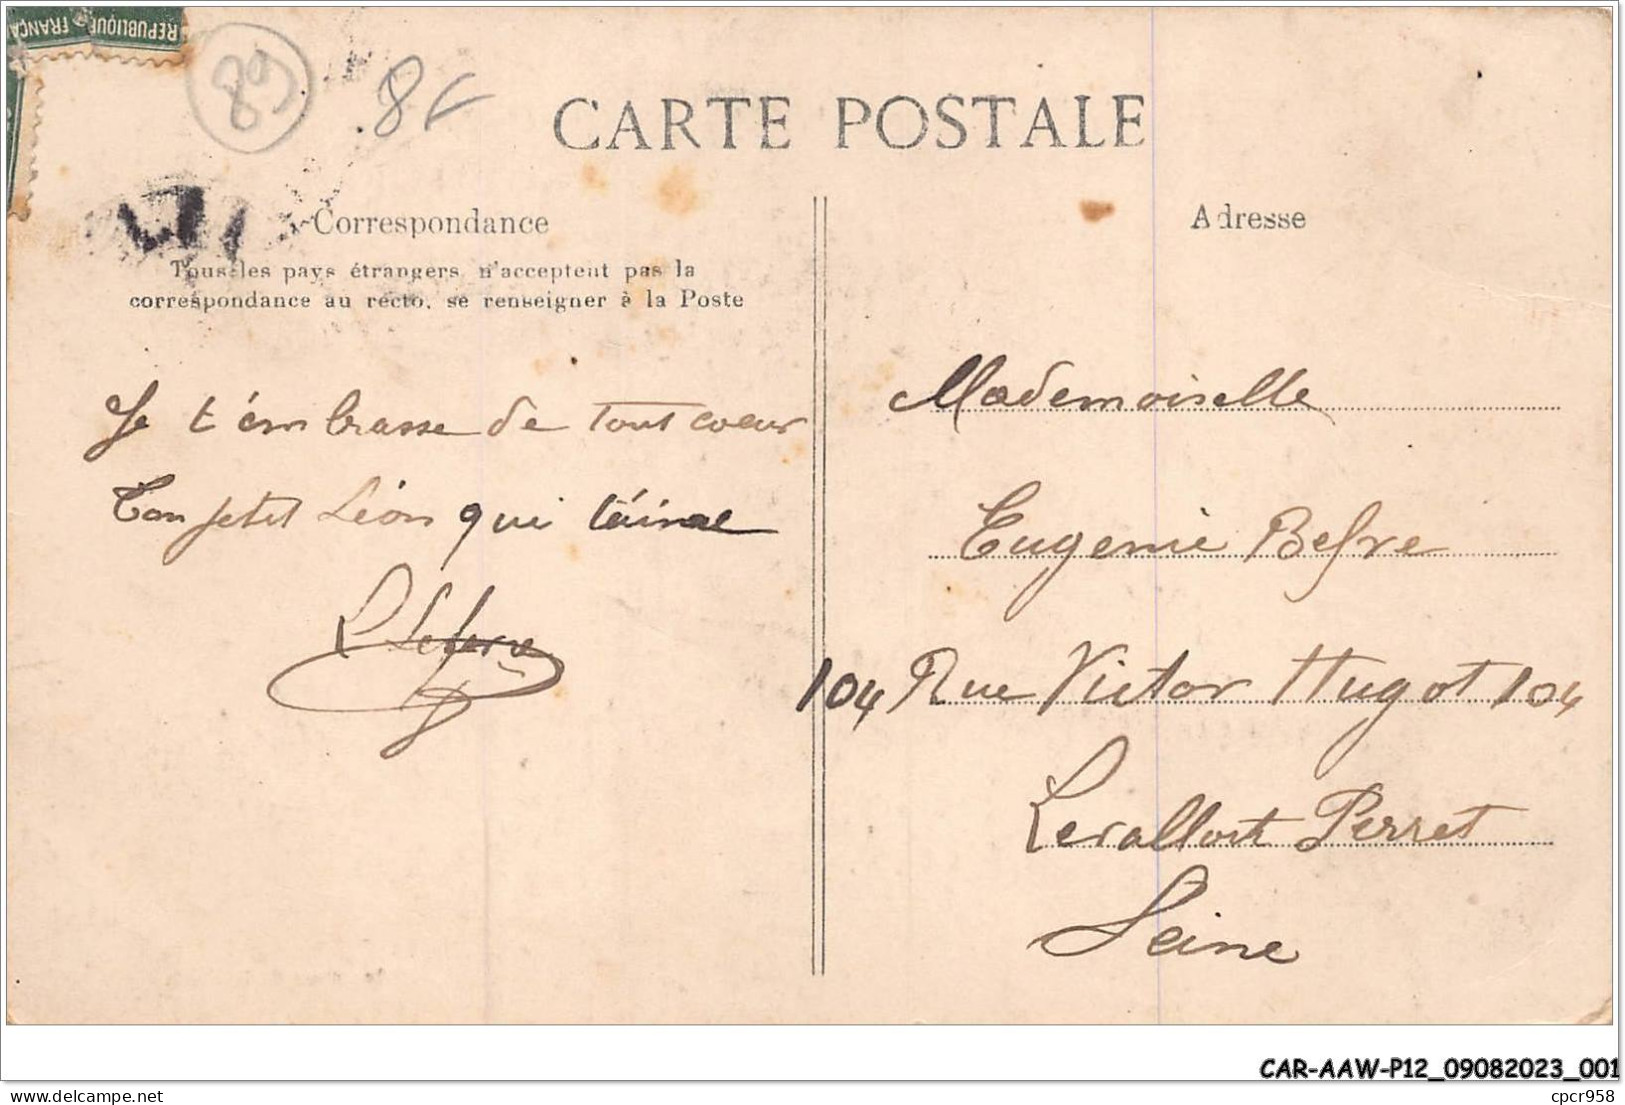 REPUBLIQUE FRANÇA
89
8€
CARTE POSTALE
Correspondance
Tous les pays étrangers n'acceptent pas la
correspondance au recto, se renseigner à la Poste
Je t'émbrasse de tout coeur
Ton petit Léon qui t'áime
L Lefevre
Adresse
Mademoiselle
Eugenie Befve
104 Rue Victor Hugot 104
Levallost Perret
Seine
CAR-AAW-P12_09082023_001
www.delcampe.net
cpcr958